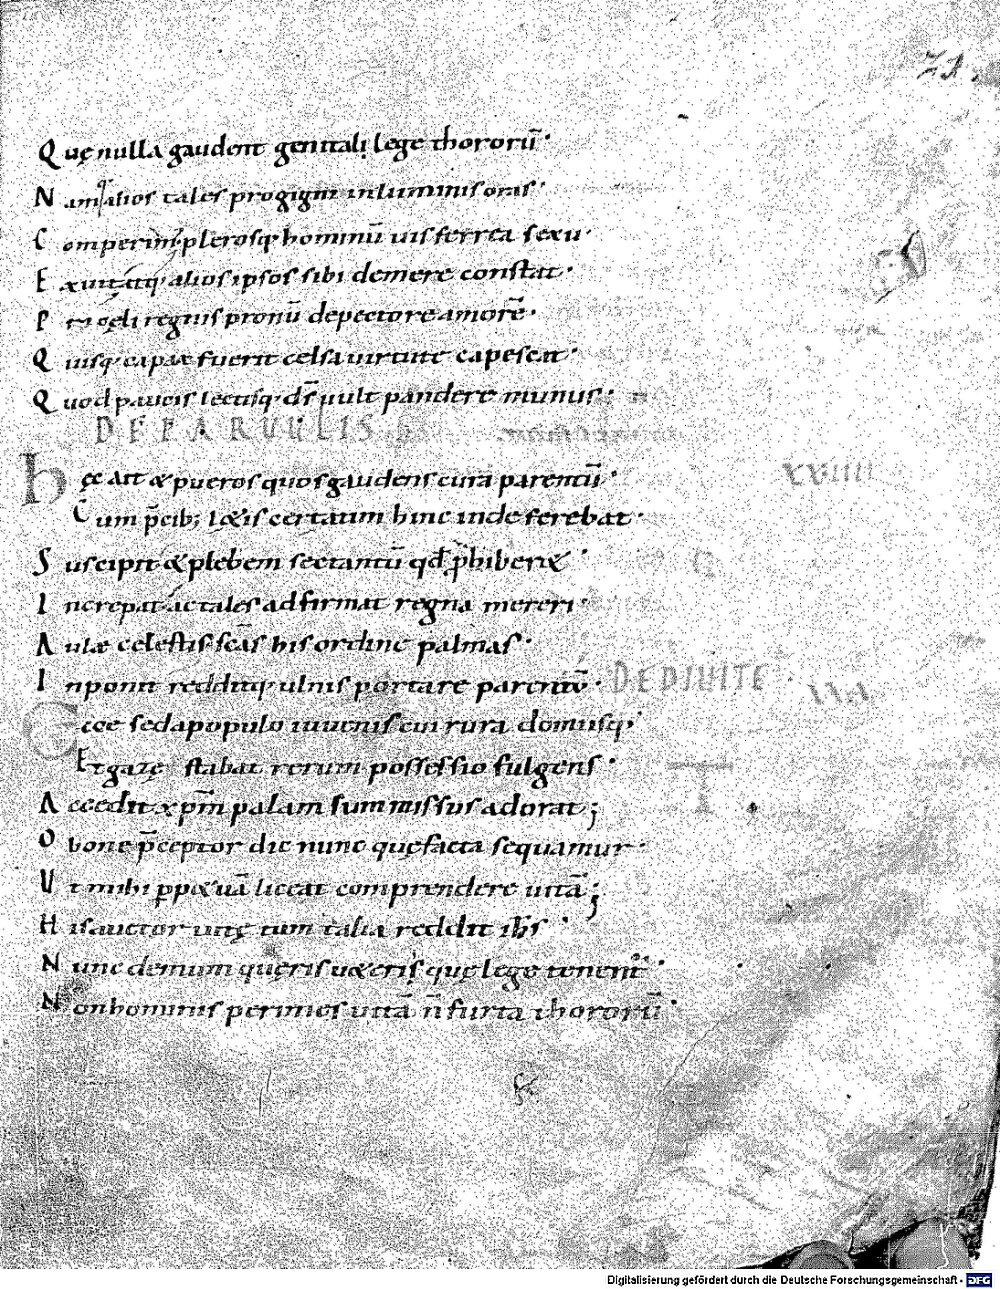 71.
Quę nulla gaudent genitali lege thororū·
Namq; alios tales progigni in luminis oras·
Comperim; plerosq; hominū uis ferrea sexu·
Exuit, atq; alios ipsos sibi demere constat·
P cęli regnis pronū de pectore amorē·
Quisq; capax fuerit celsa uirtute capescat·
Quod paucis lectisq; dr̄ uult pandere munus·
DE PARUULIS
XXIIII
hęc ait & pueros quos gaudens cura parentū·
Cum p̄cib; lętis certatim hinc inde ferebat·
Suscipit & plebem sectantū qd̄ phiberet·
Increpat ac tales adfirmat regna mereri·
Aulæ celestis sc̄as his ordine palmas·
Inponit redditq; ulnis portare parentū·
DE DIUITE
Ecce sed a populo iuuenis cui rura domusq;
Et gazę stabat rerum possessio fulgens·
Accedit xp̄m palam summissus adorat;
O bone p̄ceptor dic nunc quę facta sequamur·
Ut mihi ppetuā liceat comprendere uitā;
His auctor uitę tum talia reddit ih̄s·
Nunc demum quęris ueteris quę lege tenent·
Non hominis perimes uitā n̄ furta thororū·